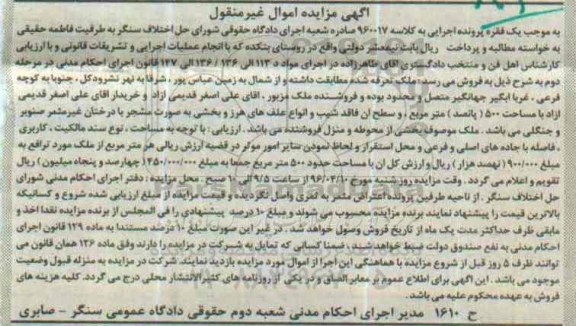 آگهی مزایده اموال غیرمنقول
به موجب یک فقره پرونده اجرایی به کلاسه 960017 صادره شعبه اجرای دادگاه حقوقی شورای حل اختلاف سنگر به طرفیت فاطمه حقیقی
به خواسته مطالبه و پرداخت ریال بابت نیمعشر دولتی واقع در روستای بنکده که با انجام عملیات اجرایی و تشریفات قانونی و با ارزیابی
کارشناس اهل فن و منتخب دادگستری اقای طاهرزاده در اجرای مواد 113 الی 116 / 136 الی 137 قانون اجرای احکام مدنی در مرحله
دوم به شرح ذیل به فروش می رسد، ملک تعرفه شده مطابقت داشته و از شمال به زمین عباس پور ، شرقا به نهر نشرودکل ، جنوبا به کوچه
فرعی ، غربا ابگیر جهانگیر متصل و محدود بوده و فروشنده ملک مزبور ، اقای علی اصغر قدیمی ازاد و خریدار اقای علی اصغر قدیمی
ازاد با مساحت 500 ( پانصد ) متر مربع ، و سطح ان فاقد شیب و انواع علف های هرز و بخشی به صورت مشجر با درختان غیرمثمر صنوبر
و جنگلی می باشد . ملک موصوف بخشی از محوطه و منزل فروشنده می باشد . ارزیابی : با توجه به مساحت ، نوع سند مالکیت ، کاربری
، فاصله با جاده های اصلی و فرعی و محل استقرار و لحاظ نمودن سایر امور موکر در قضیه ارزش ریالی هر متر مربع از ملک مورد ترافع به
مبلغ 900/000 (نهصد هزار ) ریال و ارزش کل ان با مساحت حدود 500 متر مربع جمعا به مبلغ 450/000/000 (چهارصد و پنجاه میلیون ) ریال
تقویم و اعلام می گردد . وقت مزایده روز شنبه مورخ 96/04/10 از ساعت 9/5 الی 10 صبح. محل مزایده : دفتر اجرای احکام مدنی شورای
حل اختلاف سنگر . از ناحیه طرفین پرونده اعتراض مثمر به ثمری واصل نگردیده و قیمت مزایده از مبلغ ارزیابی شده شروع و کسانیکه
بالاترین قیمت را پیشنهاد نمایند برنده مزایده محسوب می شوند و مبلغ 10 درصد پیشنهادی را فی المجلس از برنده مزایده نقدا اخذ و
مابقی ظرف حداکثر مدت یک ماه از تاریخ فروش وصول خواهد شد . در غیر این صورت مبلغ 10 درصد مستندا به ماده 129 قانون اجرای
احکام مدنی به نفع صندوق دولت ضبط خواهد شد ، ضمنا کسانی که تمایل به شرکت در مزایده را دارند وفق ماده 126 همان قانون می
توانند ظرف 5 روز قبل از شروع مزایده با هماهنگی این اجرا از اموال مورد مزایده بازدید نمایند. شرکت در مزایده به منزله قبول وضعیت
موجود می باشد . این آگهی برای اطلاع عموم بر معابر الصاق و در یکی از روزنامه های کثیرالانتشار محلی درج می گردد. کلیه هزینه های
فروش به عهده محکوم علیه می باشد.
ح 1610 مدیر اجرای احکام مدنی شعبه دوم حقوقی دادگاه عمومی سنگر – صابری